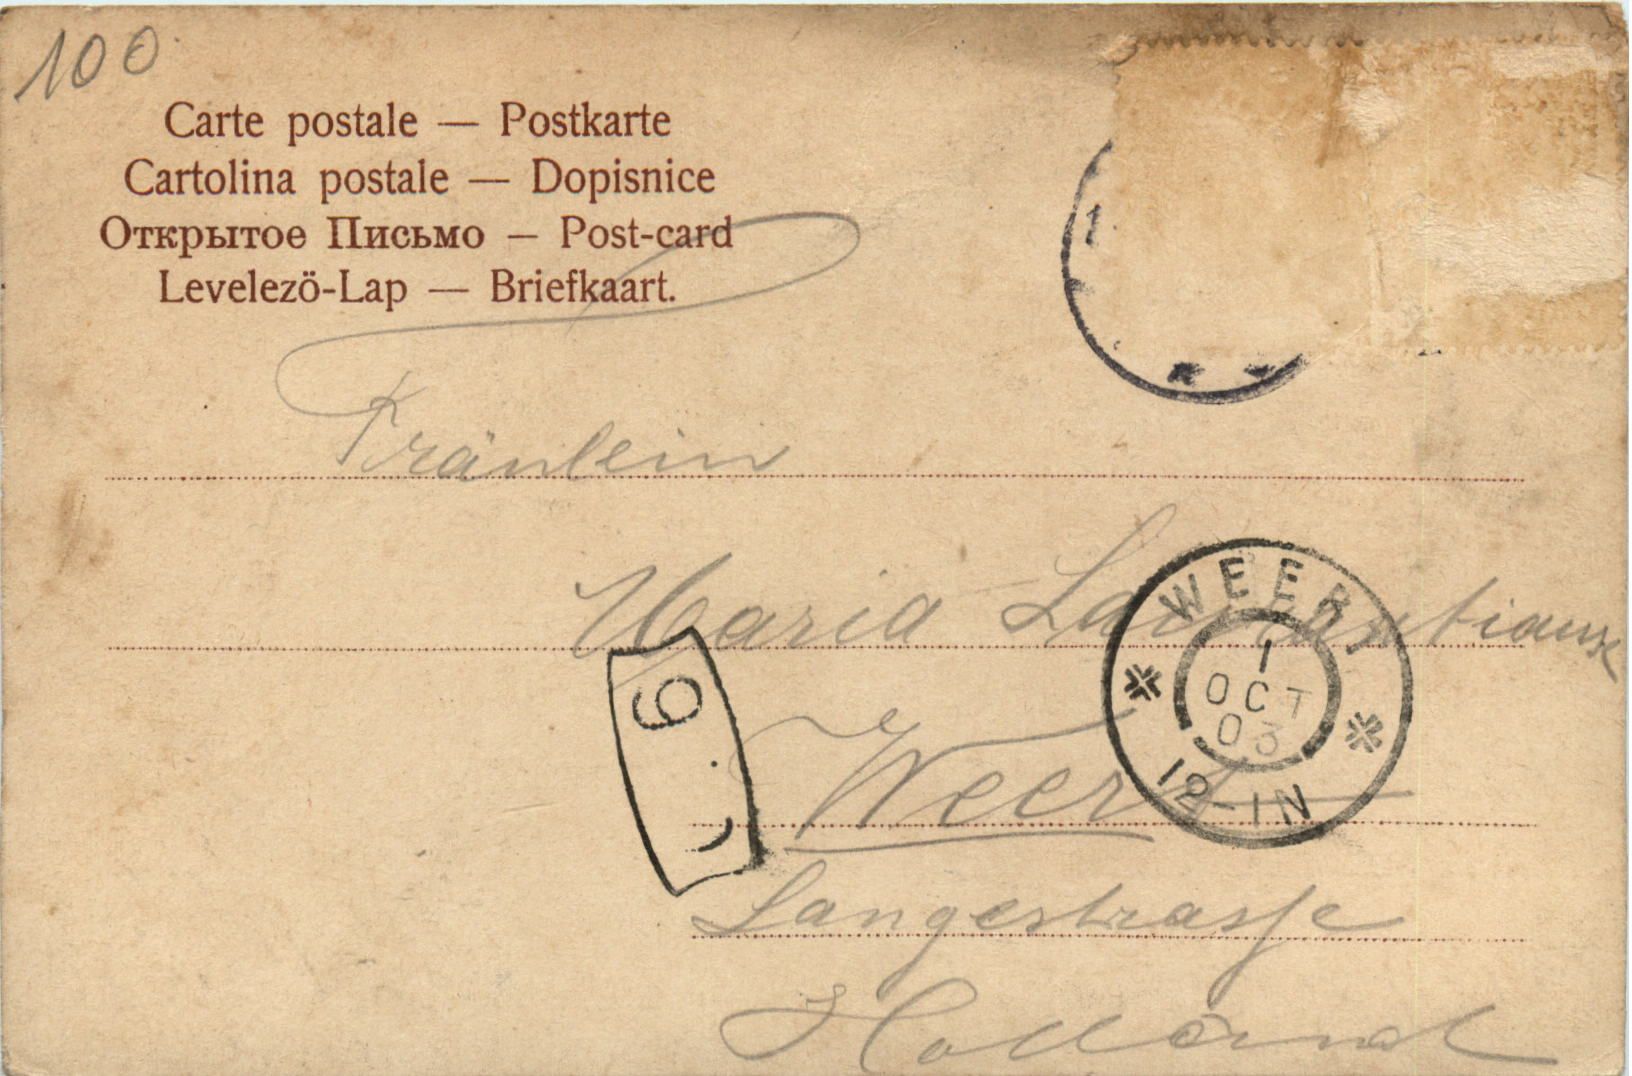 100
Carte postale — Postkarte
Cartolina postale — Dopisnice
Открытое Письмо — Post-card
Levelezö-Lap — Briefkaart.
1
Fräulein
Maria
WEERT
1
OCT
03
12-1N
9
Weert
Langestrasse
Holland